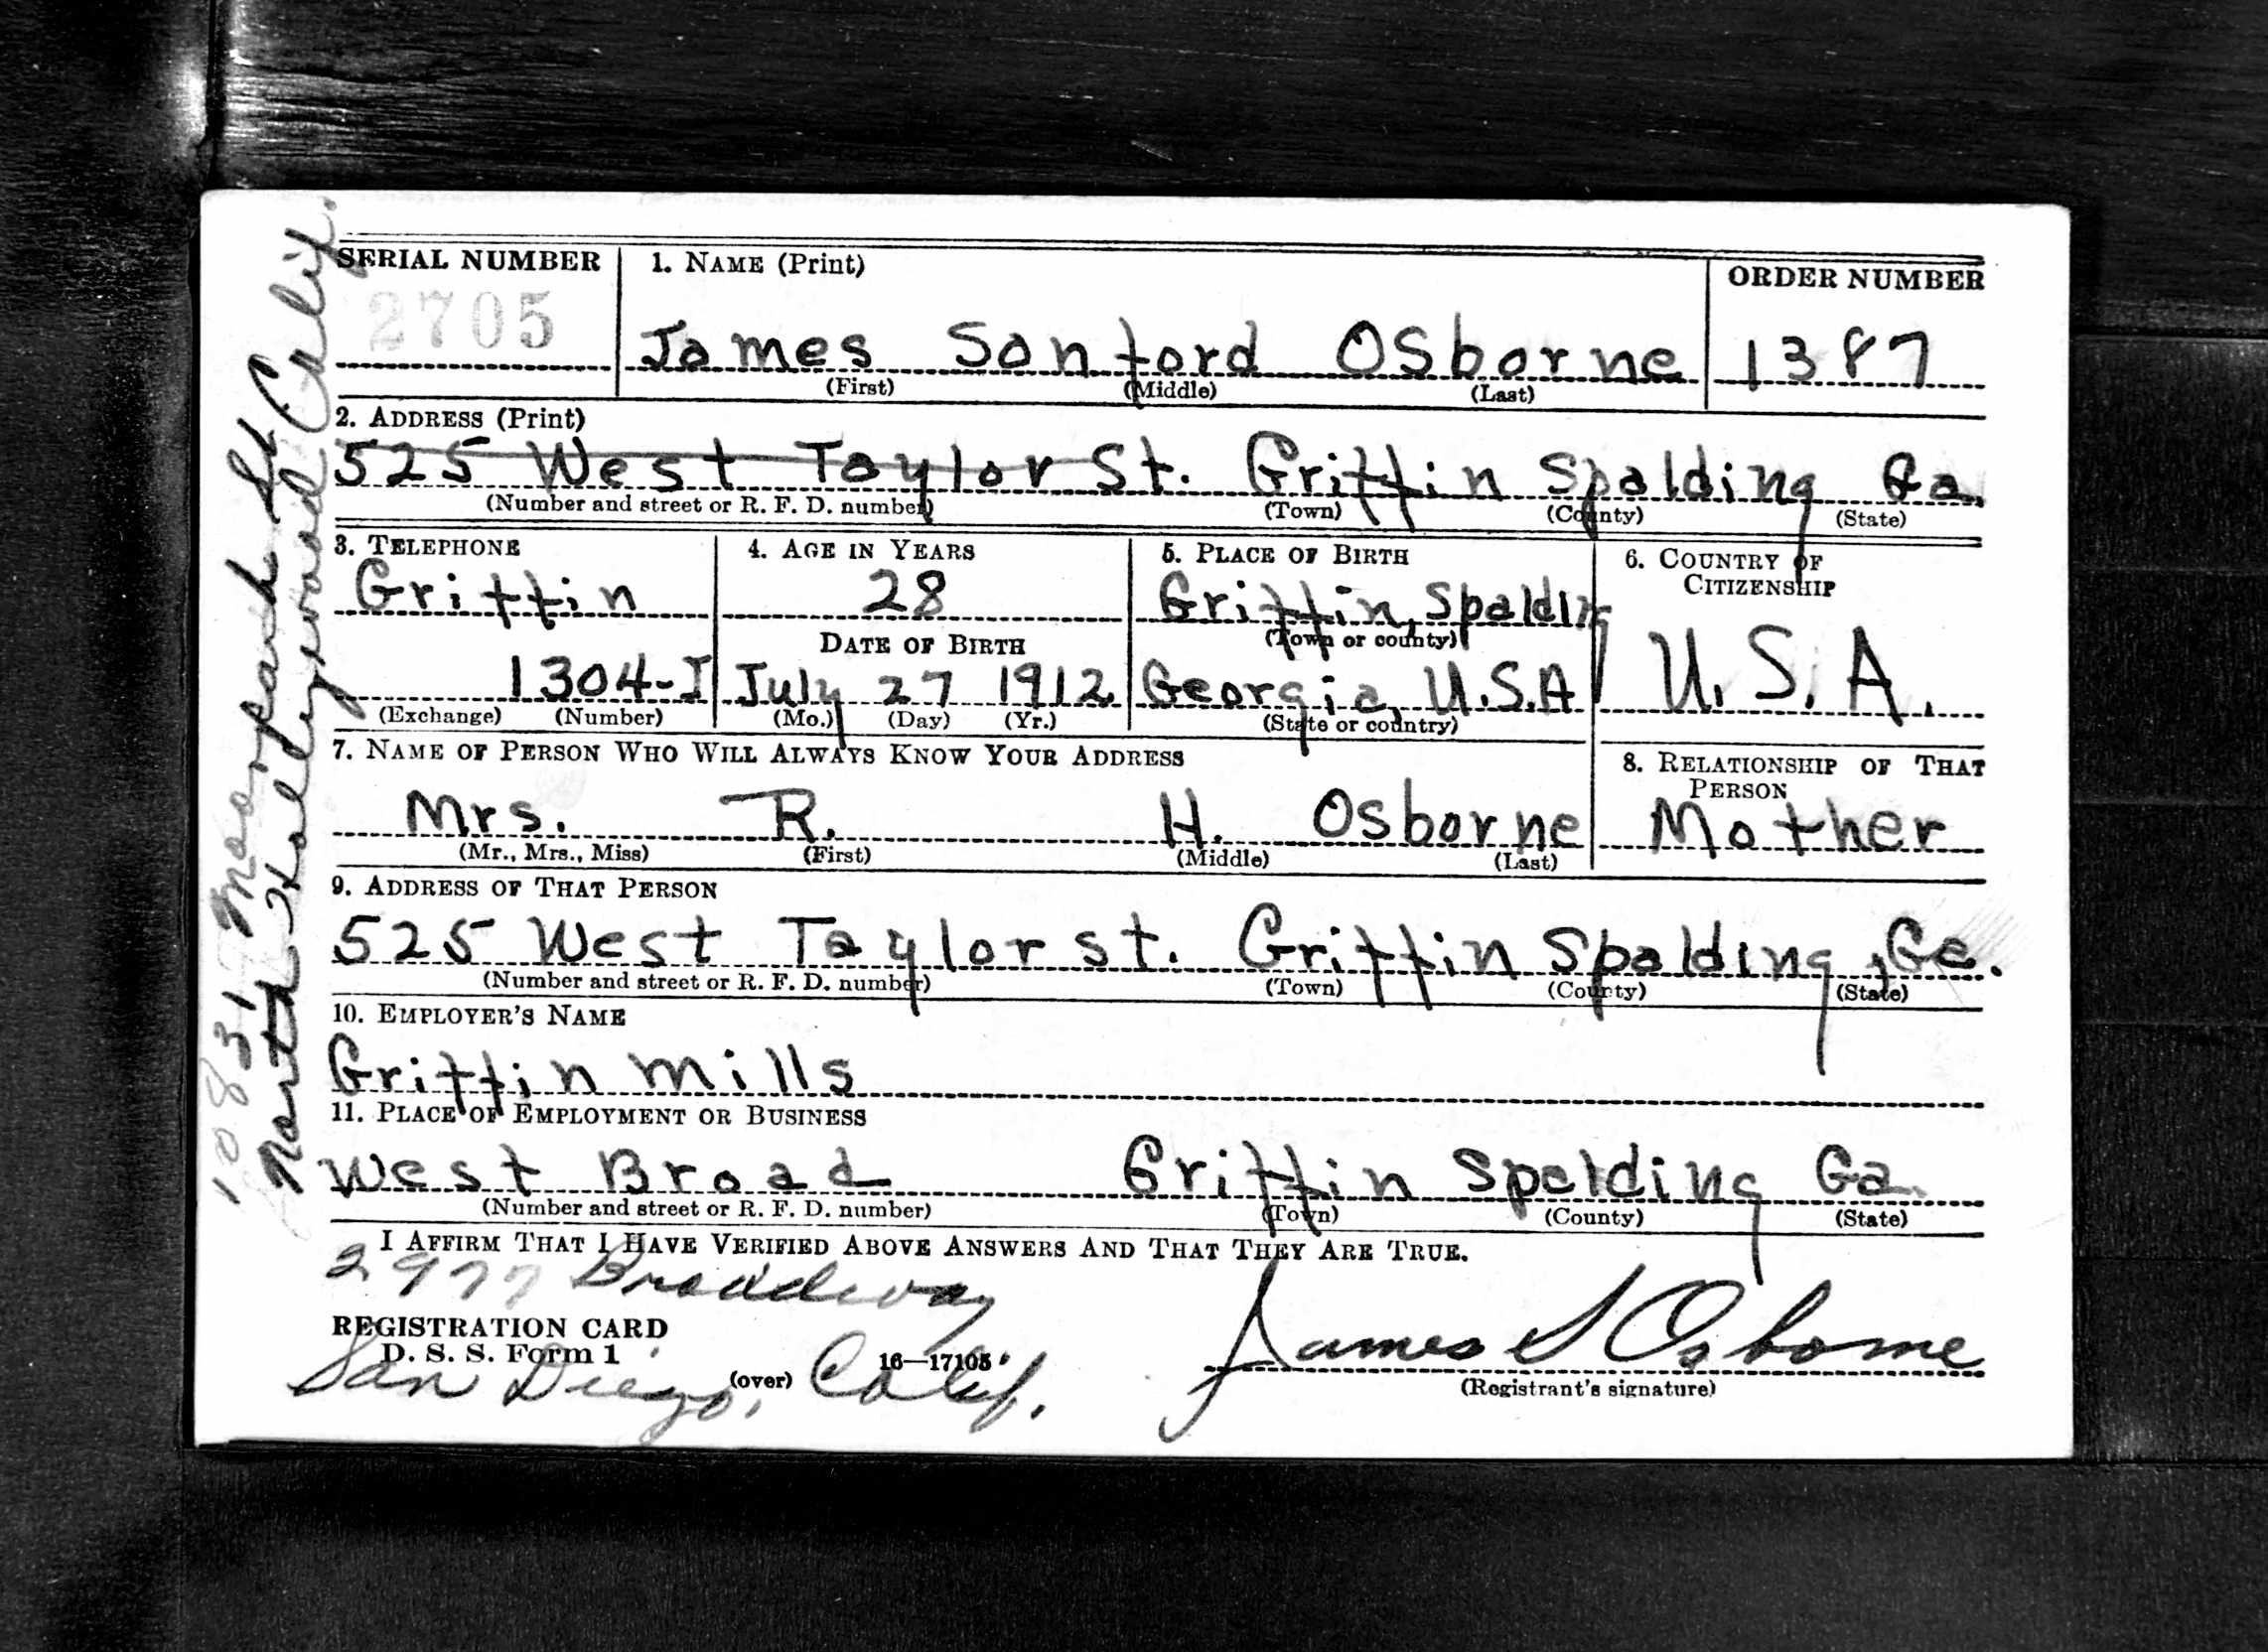 SERIAL NUMBER 1. NAME (Print) ORDER NUMBER
2705 James Sanford Osborne 1387
(First) (Middle) (Last)
2. ADDRESS (Print)
525 West Taylor St. Griffin Spalding Ga.
(Number and street or R. F. D. number) (Town) (County) (State)
3. TELEPHONE 4. AGE IN YEARS 5. PLACE OF BIRTH 6. COUNTRY OF
CITIZENSHIP
Griffin 28 Griffin, Spalding
DATE OF BIRTH (Town or county)
1304-I July 27 1912 Georgia, U.S.A U.S.A.
(Exchange) (Number) (Mo.) (Day) (Yr.) (State or country)
7. NAME OF PERSON WHO WILL ALWAYS KNOW YOUR ADDRESS 8. RELATIONSHIP OF THAT
PERSON
Mrs. R. H. Osborne Mother
(Mr., Mrs., Miss) (First) (Middle) (Last)
9. ADDRESS OF THAT PERSON
525 West Taylor st. Griffin Spalding, Ga.
(Number and street or R. F. D. number) (Town) (County) (State)
10. EMPLOYER'S NAME
Griffin Mills
11. PLACE OF EMPLOYMENT OR BUSINESS
West Broad Griffin Spalding Ga.
(Number and street or R. F. D. number) (Town) (County) (State)
I AFFIRM THAT I HAVE VERIFIED ABOVE ANSWERS AND THAT THEY ARE TRUE.
2977 Broadway
REGISTRATION CARD
D. S. S. Form 1 16—17105
San Diego, Calif.
(over)
James S Osborne
(Registrant's signature)
10837 Moorpark St
North Hollywood Calif.